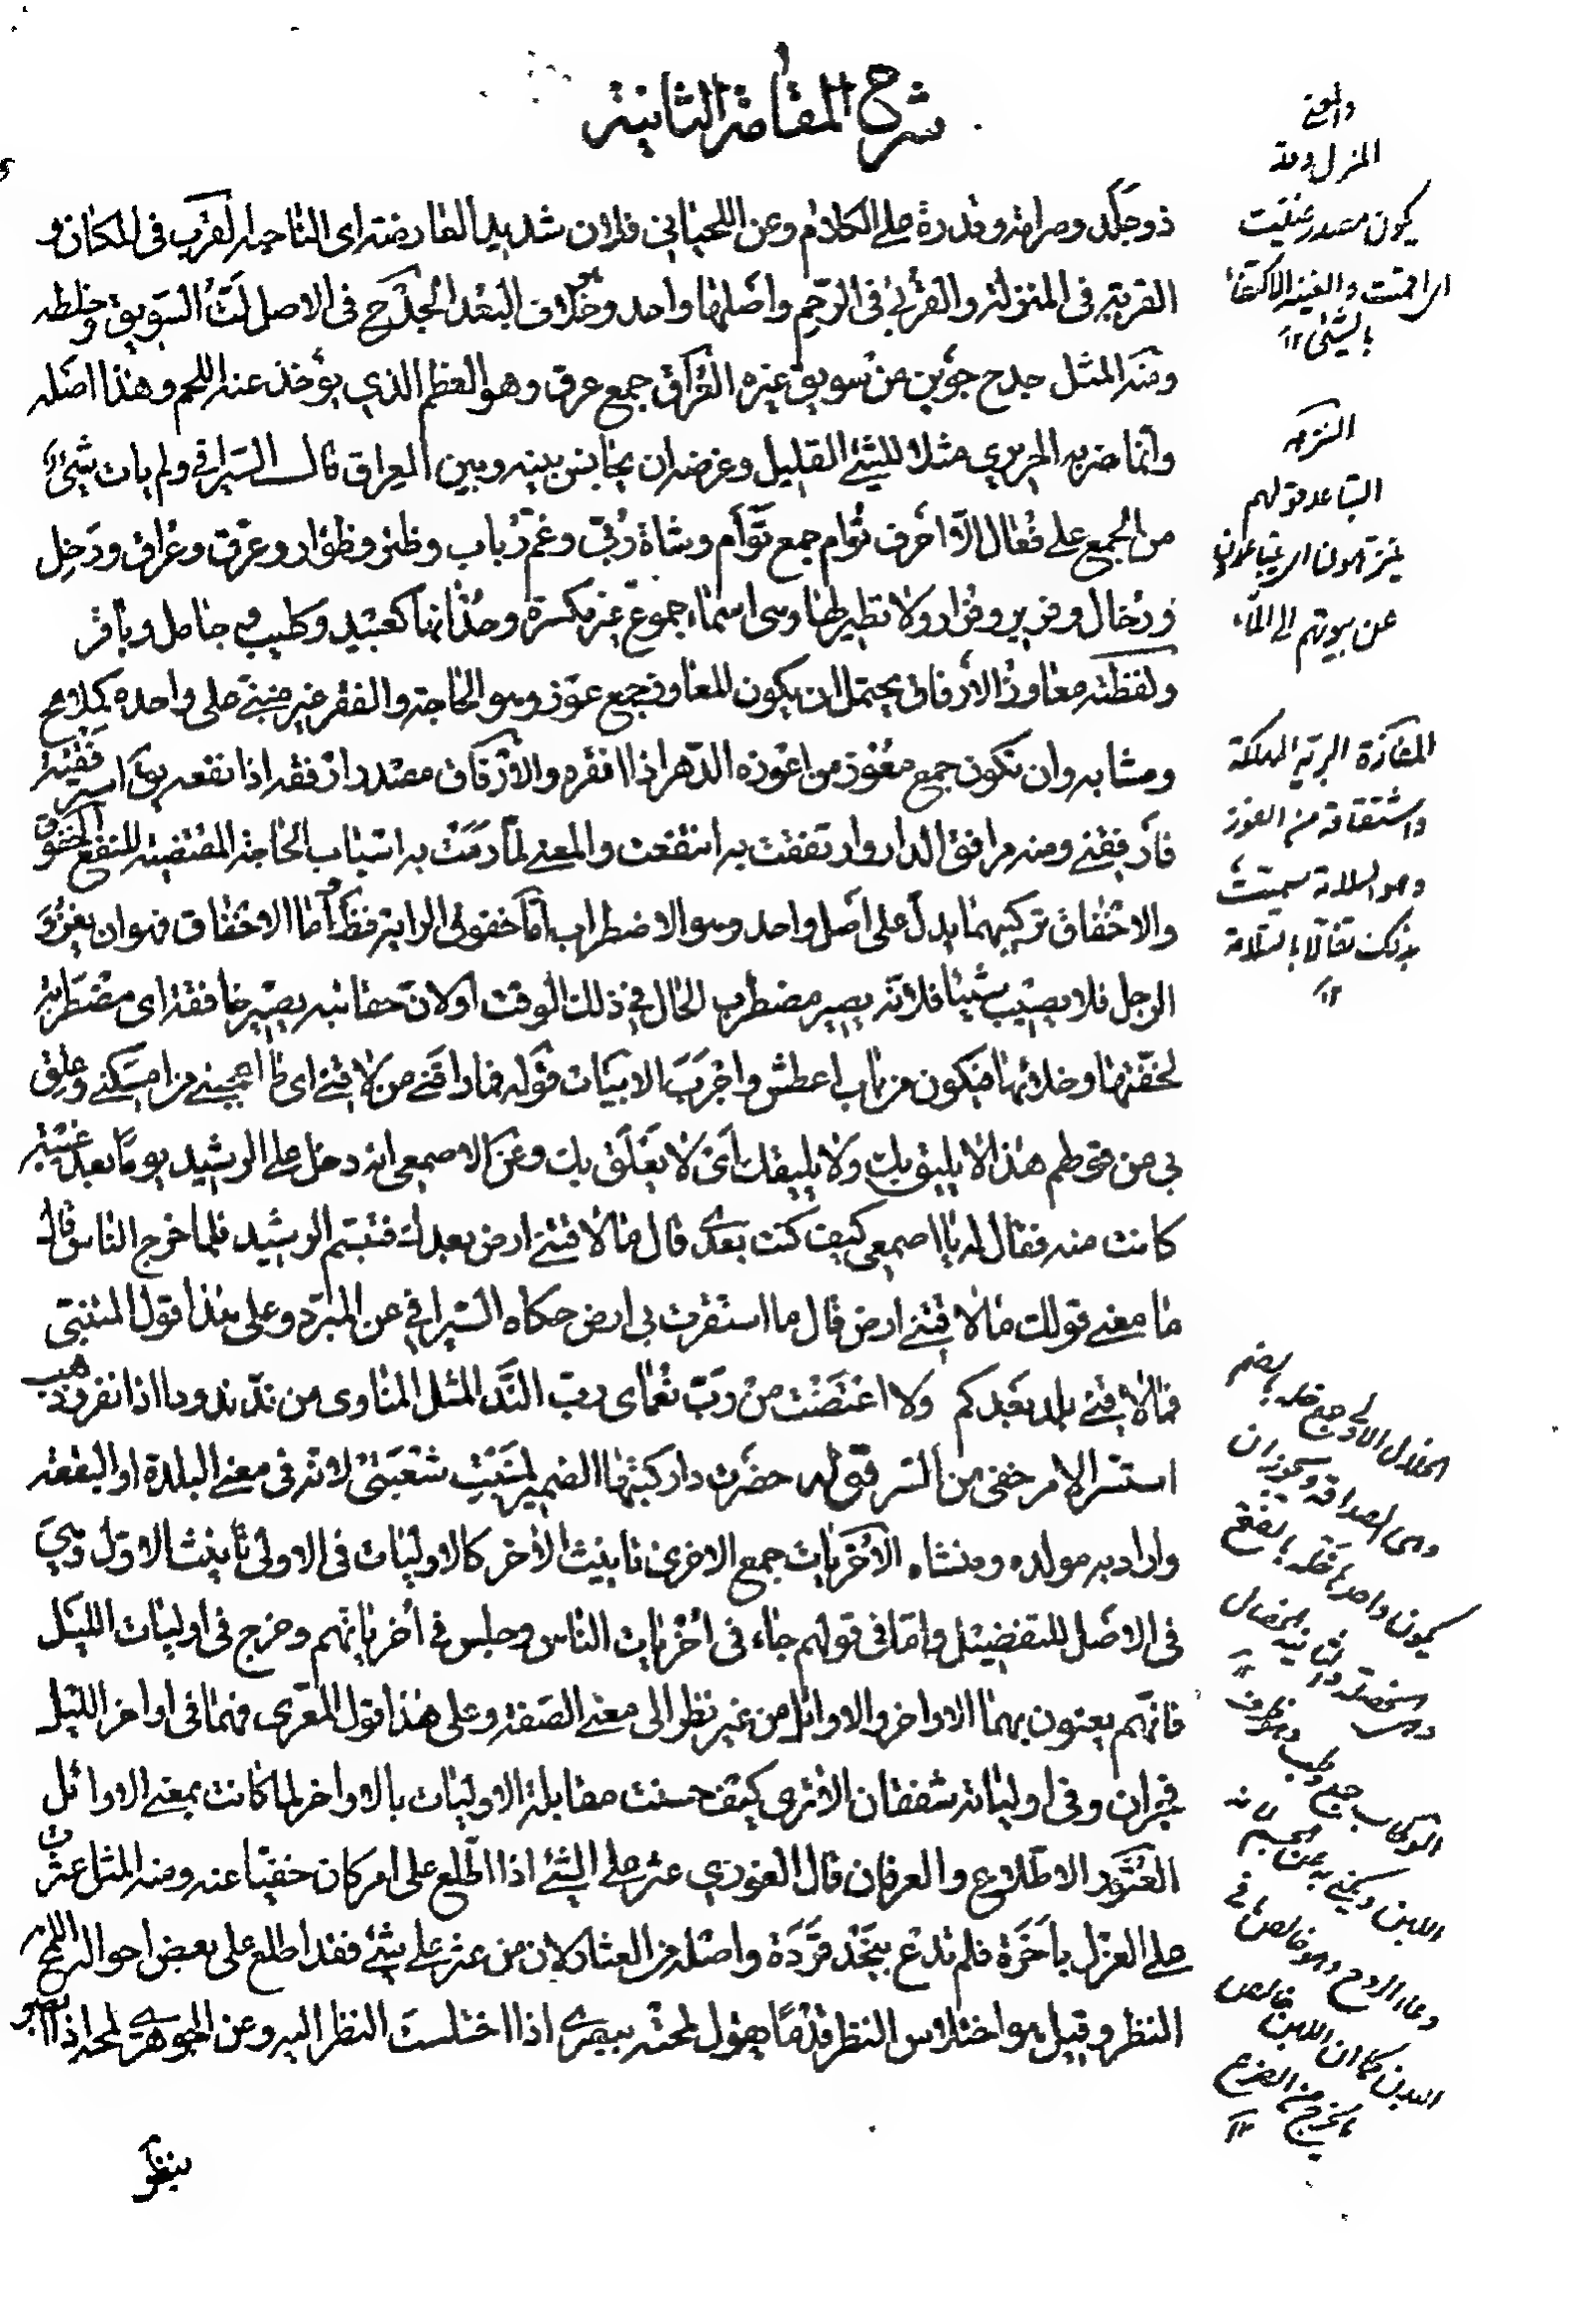 شرح المقامة الثانية
ذو جلد وصرامة وقدرة على الكلام وعن اللحياني فلان شديد العارضة اى الناحية القرب فى المكان و
القربة فى المنزلة والقربى فى الرحم واصلها واحد وهو خلاف البعد الجدح فى الاصل لت السويق وخلطه
ومنه المثل جدح جوين من سويق غيره العراق جمع عرق وهو العظم الذي يؤخذ عنه اللحم وهذا اصله
وانما ضربه الحريري مثلا للشئ القليل وغرضه ان يجانس بينه وبين العراق قال السيرافي ولم يات شئ
من الجمع على فعال الا احرف تؤام جمع توأم وشاة ربى وغنم رباب وظئر وظؤار وعرق وعراق ورخل
ورخال وفرير وفرار ولا نظير لها وهى اسماء جموع غير مكسرة وحدانها كعبيد وكليب و جامل وباقر
ولفظة معاوز الارفاق يحتمل ان يكون للمعاوز جمع عوز وهو الحاجة والفقر غير مبنى على واحده كملامح
ومشابه وان تكون جمع معوز من اعوزه الدهر اذا افقره والارفاق مصدر ارفقه اذا نفعه يقال استرفقته
فارفقني ومنه مرافق الدار وارتفقت به انتفعت والمعنى لما رمت به اسباب الحاجة المقتضية للنفع الخفوق
والاخفاق تركيبهما يدل على اصل واحد وهو الاضطراب اما خفوق الراية فظ واما الاخفاق فهو ان يغزو
الرجل فلا يصيب شيئا فلانه يصير مضطرب الحال في ذلك الوقت اولان حقائبه يصير خافقة اى مضطربة
لخفتها وخلائها فيكون من باب اعطش واجرب الابيات قوله فما راقني من لاقني اى ما اعجبني من امسكني وعلق
بي من قولهم هذا لا يليق بك ولا يليقك اى لا يعلق بك وعن الاصمعي انه دخل على الرشيد يوما بعد غيبة
كانت منه فقال له يا اصمعي كيف كنت بعدي قال ما لاقتني ارض بعدك فتبسم الرشيد فلما خرج الناس قال
ما معنى قولك ما لاقتني ارض قال ما استقرت بي ارض حكاه السيرافي عن المبرد وعلى هذا قول المتنبي
فما لاقني بلد بعدكم ولا اعتضت من رب نعماى رب الند المثل المناوى من ند ندودا اذا نفر وذهب
استسر الامر خفى من السر قوله حضرت دار كتبها الضمير لمنبت شعبتى لانه فى معنى البلدة او البقعة
واراد به مولده ومنشاه الاخريات جمع الاخرى تانيث الاخر كالاوليات فى الاولى تانيث الاول وهى
فى الاصل للتفضيل واما فى قولهم جاء فى اخريات الناس وجلس في اخرياتهم وخرج فى اوليات الليل
فانهم يعنون بهما الاواخر والاوائل من غير نظر الى معنى الصفة وعلى هذا قول المعري فهما فى اواخر الليل
فجران وفى اولياته شفقان الا ترى كيف حسنت مقابلة الاوليات بالاواخر لما كانت بمعنى الاوائل
العثور الاطلاع والعرفان قال الغوري عثر على الشئ اذا اطلع على امر كان خفيا عنه ومنه المثل عثرت
على الغزل باخرة فلم تدع بنجد قردة واصله من العثار لان من عثر على شئ فقد اطلع على بعض احواله اللمح
النظر وقيل هو اختلاس النظر يقول لمحته ببصري اذا اختلست النظر اليه وعن الجوهري لمحه اذا ابصره
بنظر
والمعنى
المنزل ومنه
يكون مصدر غنيت
اى اقمت والغنية الاكتفاء
بالشئ ١٢
النزهة
التباعد قولهم
يتنزهون اى يتباعدون
عن بيوتهم الى الماء
المفازة البرية المهلكة
واشتقاقه من الفوز
وهو السلامة سميت
بذلك تفاؤلا بالسلامة
١٢
الخلال الاولى جمع خلة بالضم
وهى الصداقة ويجوز ان
يكون واحدها خلة بالفتح